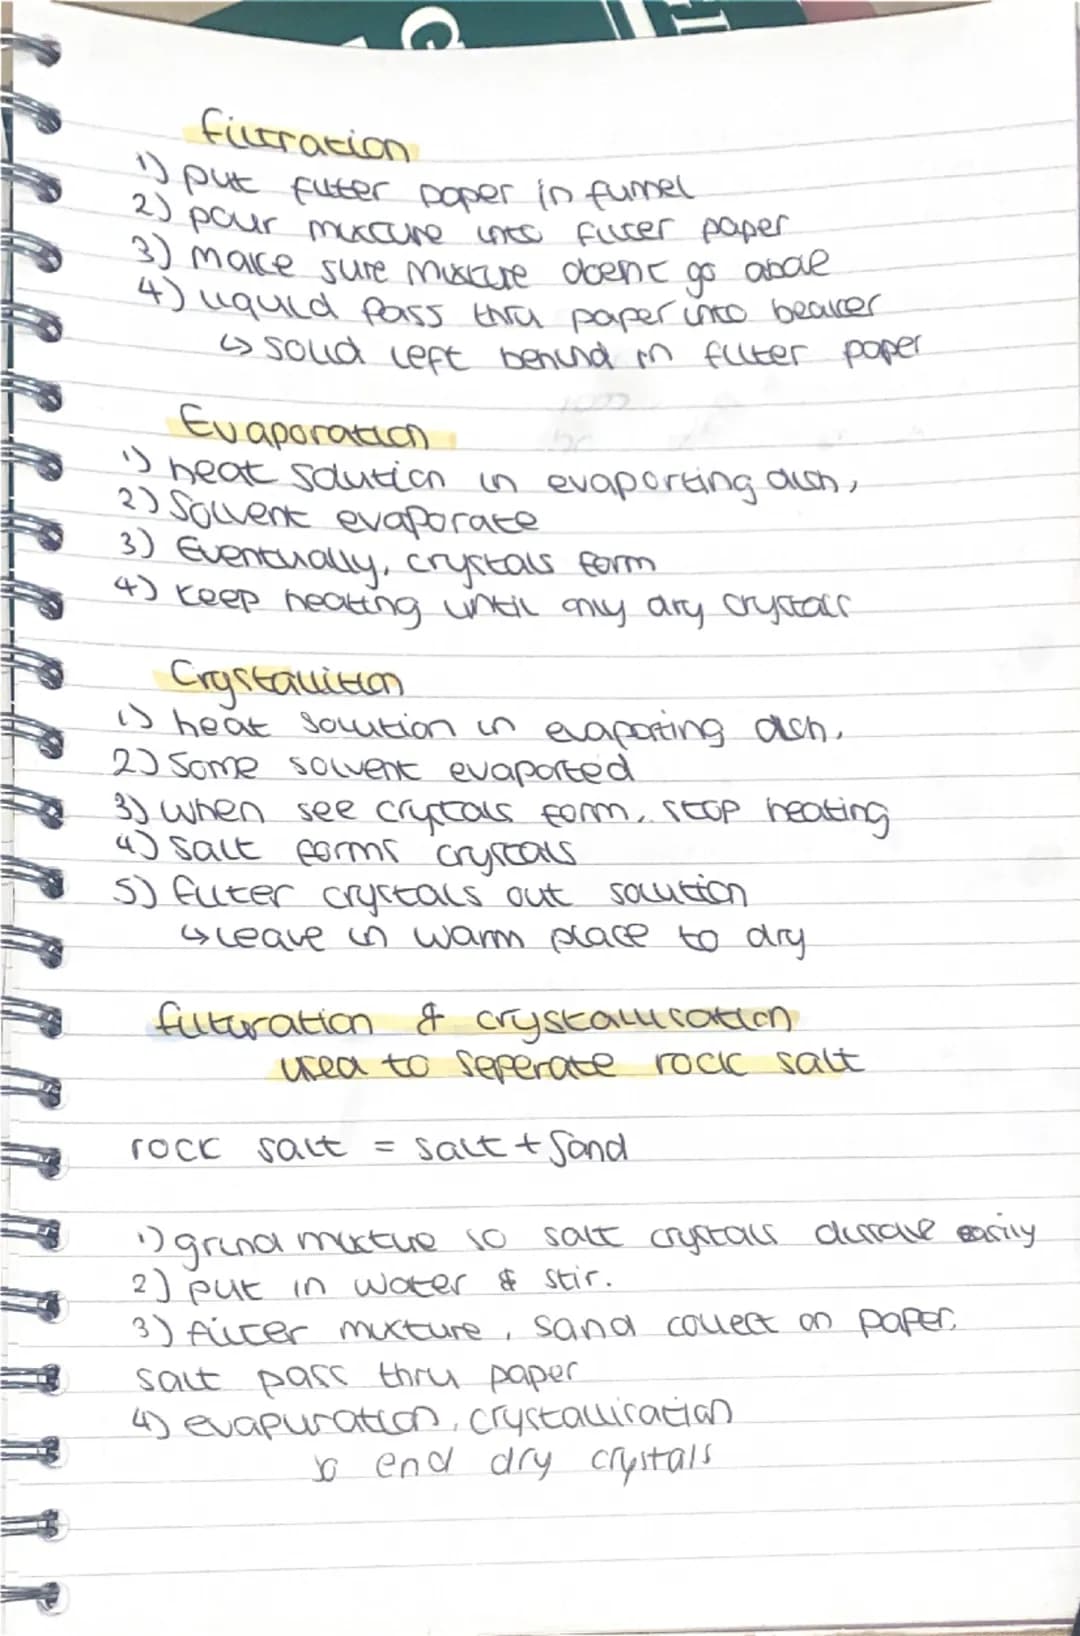 filtration
1) put filter paper in funnel
2) pour mixture into filter paper
3) make sure mixture doent go above
4) liquid pass thru paper into beaker
↳ solid left behind in filter paper
Evaporation
1) heat solution in evaporting dish,
2) Solvent evaporate
3) Eventually, crystals form
4) keep heating until only dry crystals
Crystallition
1) heat solution in evaporting dish.
2) Some solvent evaported
3) when see crystals form, stop heating
4) salt forms crystals
5) filter crystals out solution
↳ leave in warm place to dry
filturation & crystallisation
used to seperate rock salt
rock salt = salt + sand
1) grind mixtue so salt crystals dissolve easily
2) put in water & stir.
3) filter mixture, sand collect on paper,
salt pass thru paper
4) evapuration, crystallisation
so end dry crystals